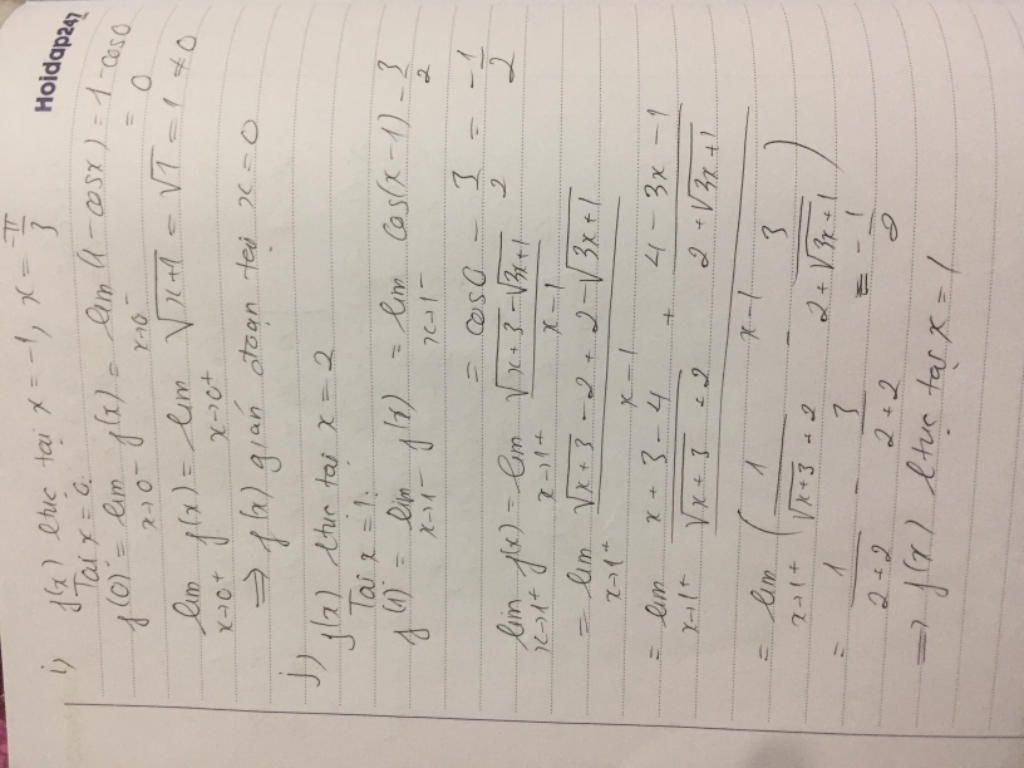 Hoidap247
i) f(x) ltuc tại x = -1, x = π/3
Tại x = 0.
f(0) = lim_{x→0^-} f(x) = lim_{x→0^-} (1 - cosx) = 1 - cos0
= 0
lim_{x→0^+} f(x) = lim_{x→0^+} √(x+1) = √1 = 1 ≠ 0
⇒ f(x) gián đoạn tại x = 0
j)
f(x) ltuc tại x = 2
Tại x = 1.
f(1) = lim_{x→1^-} f(x) = lim_{x→1^-} cos(x-1) - 3/2
= cos0 - 3/2 = -1/2
lim_{x→1^+} f(x) = lim_{x→1^+} (√(x+3) - √(3x+1))/(x-1)
= lim_{x→1^+} (√(x+3) - 2 + 2 - √(3x+1))/(x-1)
= lim_{x→1^+} ((x+3-4)/(√(x+3) + 2) + (4-3x-1)/(2+√(3x+1)))/(x-1)
= lim_{x→1^+} (1/(√(x+3) + 2) - 3/(2+√(3x+1)))
= 1/(2+2) - 3/(2+2) = -1/2
⇒ f(x) ltuc tại x = 1